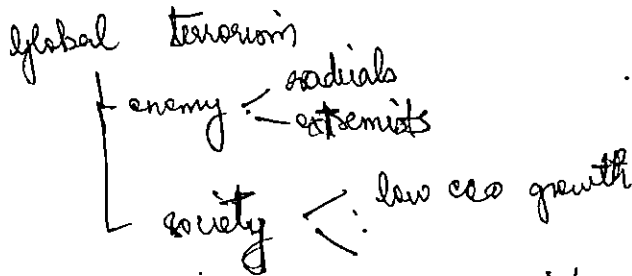 global terrorism
enemy radicals
extremists
society low eco growth